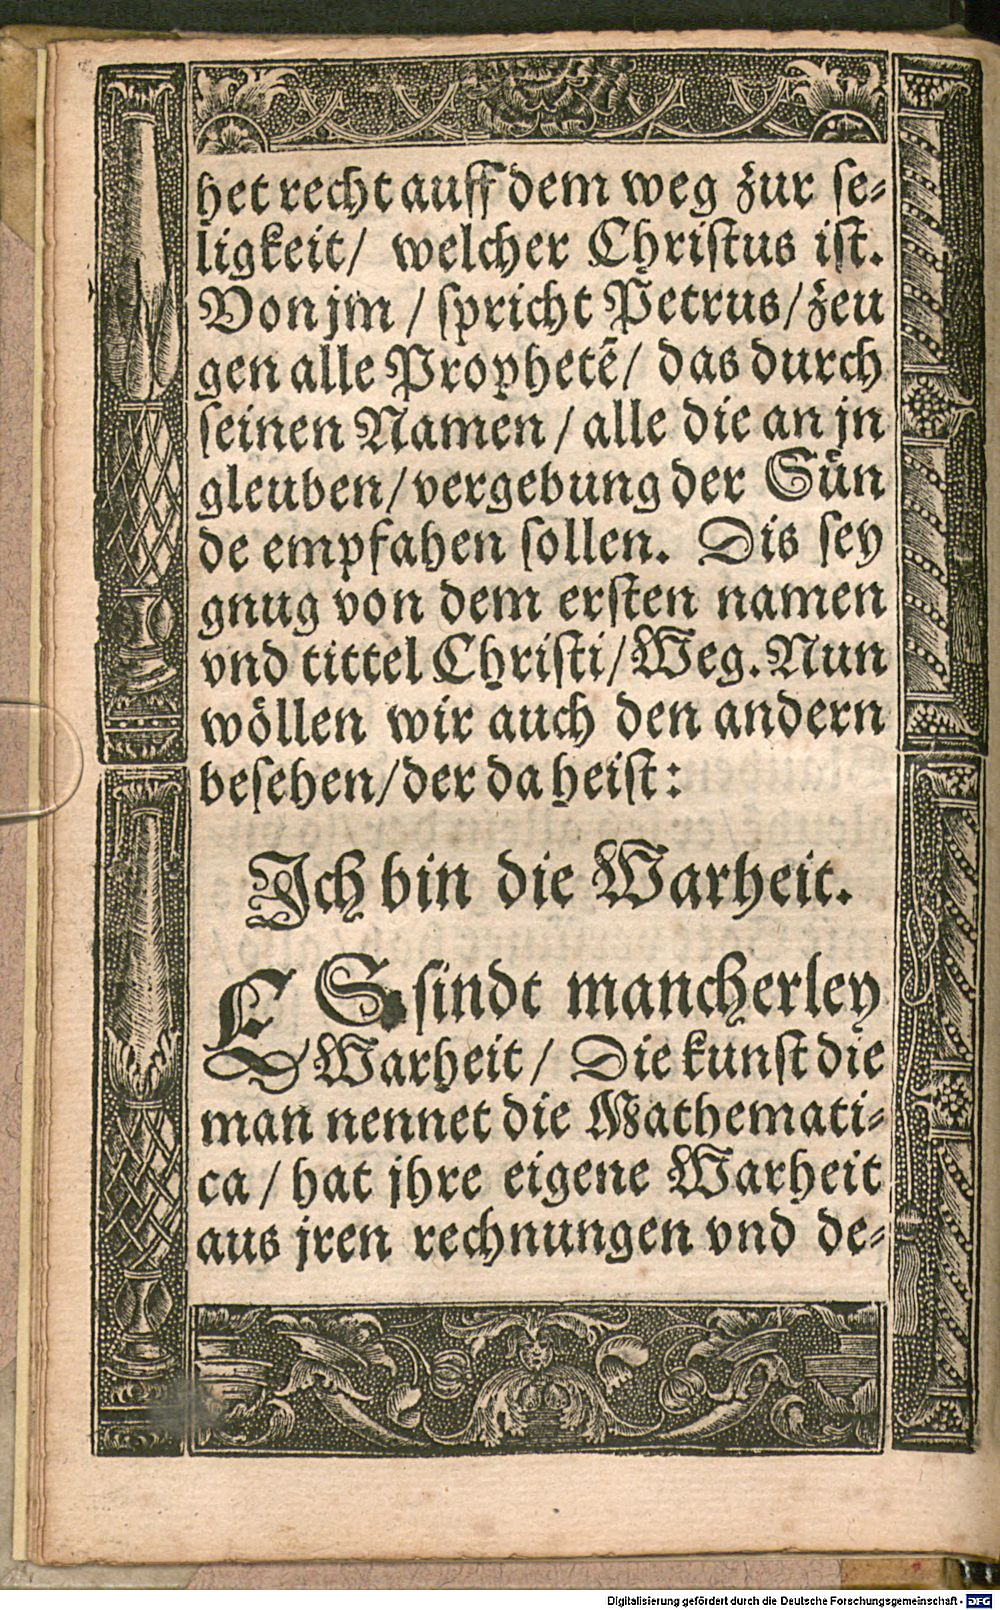 het recht auff dem weg zur se⸗
ligkeit/ welcher Christus ist.
Von jm / spricht Petrus/ zeu
gen alle Prophetẽ/ das durch
seinen Namen / alle die an jn
gleuben/ vergebung der Sün
de empfahen sollen. Dis sey
gnug von dem ersten namen
vnd tittel Christi/ Weg. Nun
wöllen wir auch den andern
besehen/ der da heist:
Ich bin die Warheit.
ES sindt mancherley
Warheit/ Die kunst die
man nennet die Mathemati⸗
ca / hat jhre eigene Warheit
aus jren rechnungen vnd de⸗
Digitalisierung gefördert durch die Deutsche Forschungsgemeinschaft - DFG